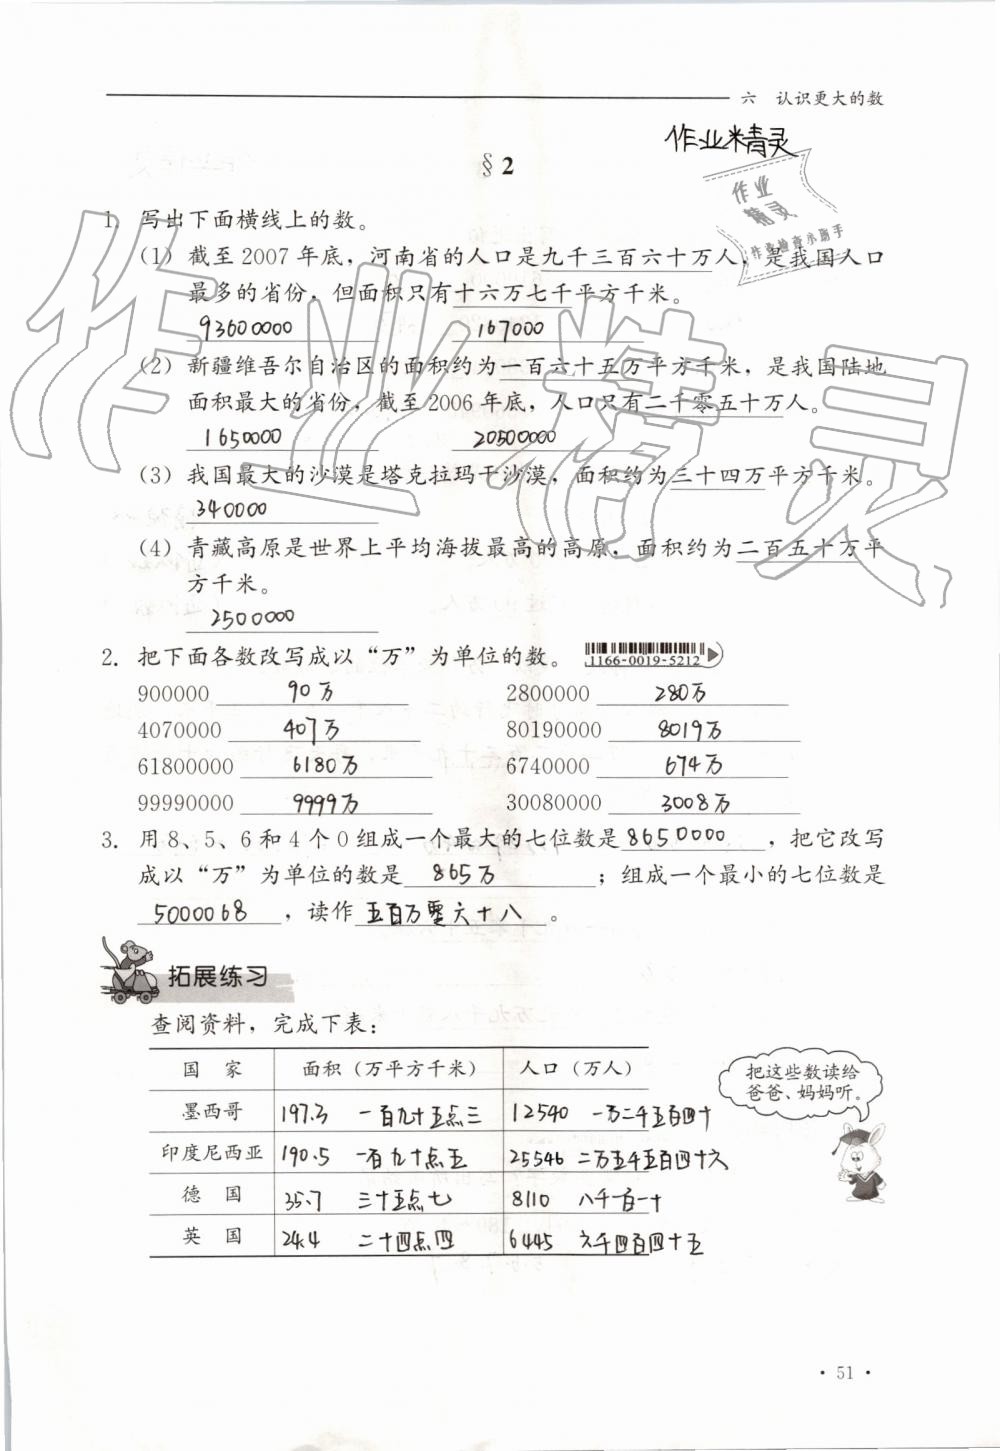 六 认识更大的数
作业精灵
作业
精灵
作业检查小助手
§2
1. 写出下面横线上的数。
(1) 截至 2007 年底，河南省的人口是九千三百六十万人，是我国人口
最多的省份，但面积只有十六万七千平方千米。
93600000 167000
(2) 新疆维吾尔自治区的面积约为一百六十五万平方千米，是我国陆地
面积最大的省份，截至 2006 年底，人口只有二千零五十万人。
1650000 20500000
(3) 我国最大的沙漠是塔克拉玛干沙漠，面积约为三十四万平方千米。
340000
(4) 青藏高原是世界上平均海拔最高的高原，面积约为二百五十万平
方千米。
2500000
2. 把下面各数改写成以“万”为单位的数。 1166-0019-5212
900000 90万 2800000 280万
4070000 407万 80190000 8019万
61800000 6180万 6740000 674万
99990000 9999万 30080000 3008万
3. 用 8、5、6 和 4 个 0 组成一个最大的七位数是 8650000，把它改写
成以“万”为单位的数是 865万；组成一个最小的七位数是
5000068，读作 五百万零六十八。
拓展练习
查阅资料，完成下表：
国 家 面积（万平方千米） 人口（万人）
墨西哥 197.3 一百九十五点三 12540 一万二千五百四十
印度尼西亚 190.5 一百九十点五 25546 二万五千五百四十六
德 国 35.7 三十五点七 8110 八千一百一十
英 国 24.4 二十四点四 6445 六千四百四十五
把这些数读给
爸爸、妈妈听。
作业精灵
·51·